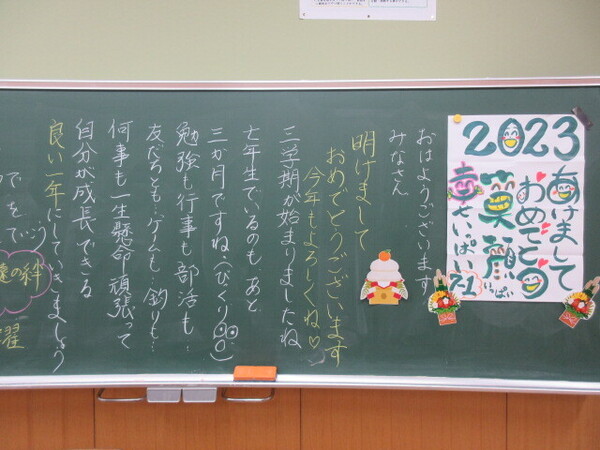 2023
あけまして
おめでとう
笑顔いっぱい
幸せいっぱい
7-1
おはようございます
みなさん
明けまして
おめでとうございます
今年もよろしくね♡
三学期が始まりましたね
七年生でいるのも、あと
三か月ですね。(びっくり)
勉強も行事も部活も…
友だちとも…ゲームも…釣りも…
何事も一生懸命頑張って
自分が成長できる
良い一年にしていきましょう
の絆
躍